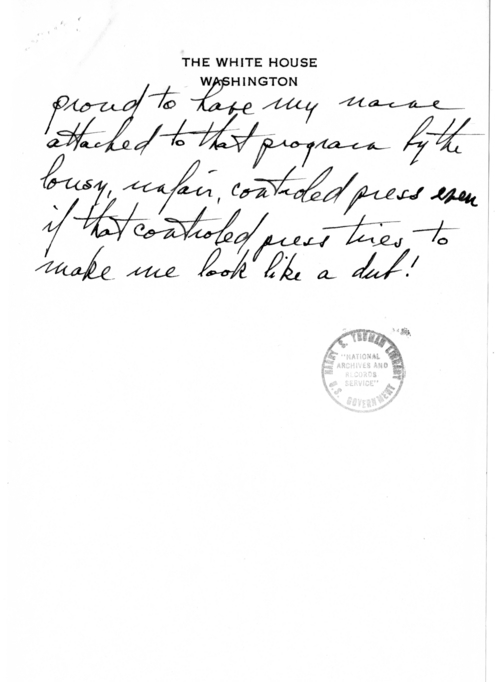 THE WHITE HOUSE
WASHINGTON
proud to have my name
attached to that program by the
lousy, unfair, controled press even
if that controled press tries to
make me look like a dub!
HARRY S. TRUMAN LIBRARY
"NATIONAL
ARCHIVES AND
RECORDS
SERVICE"
U.S. GOVERNMENT